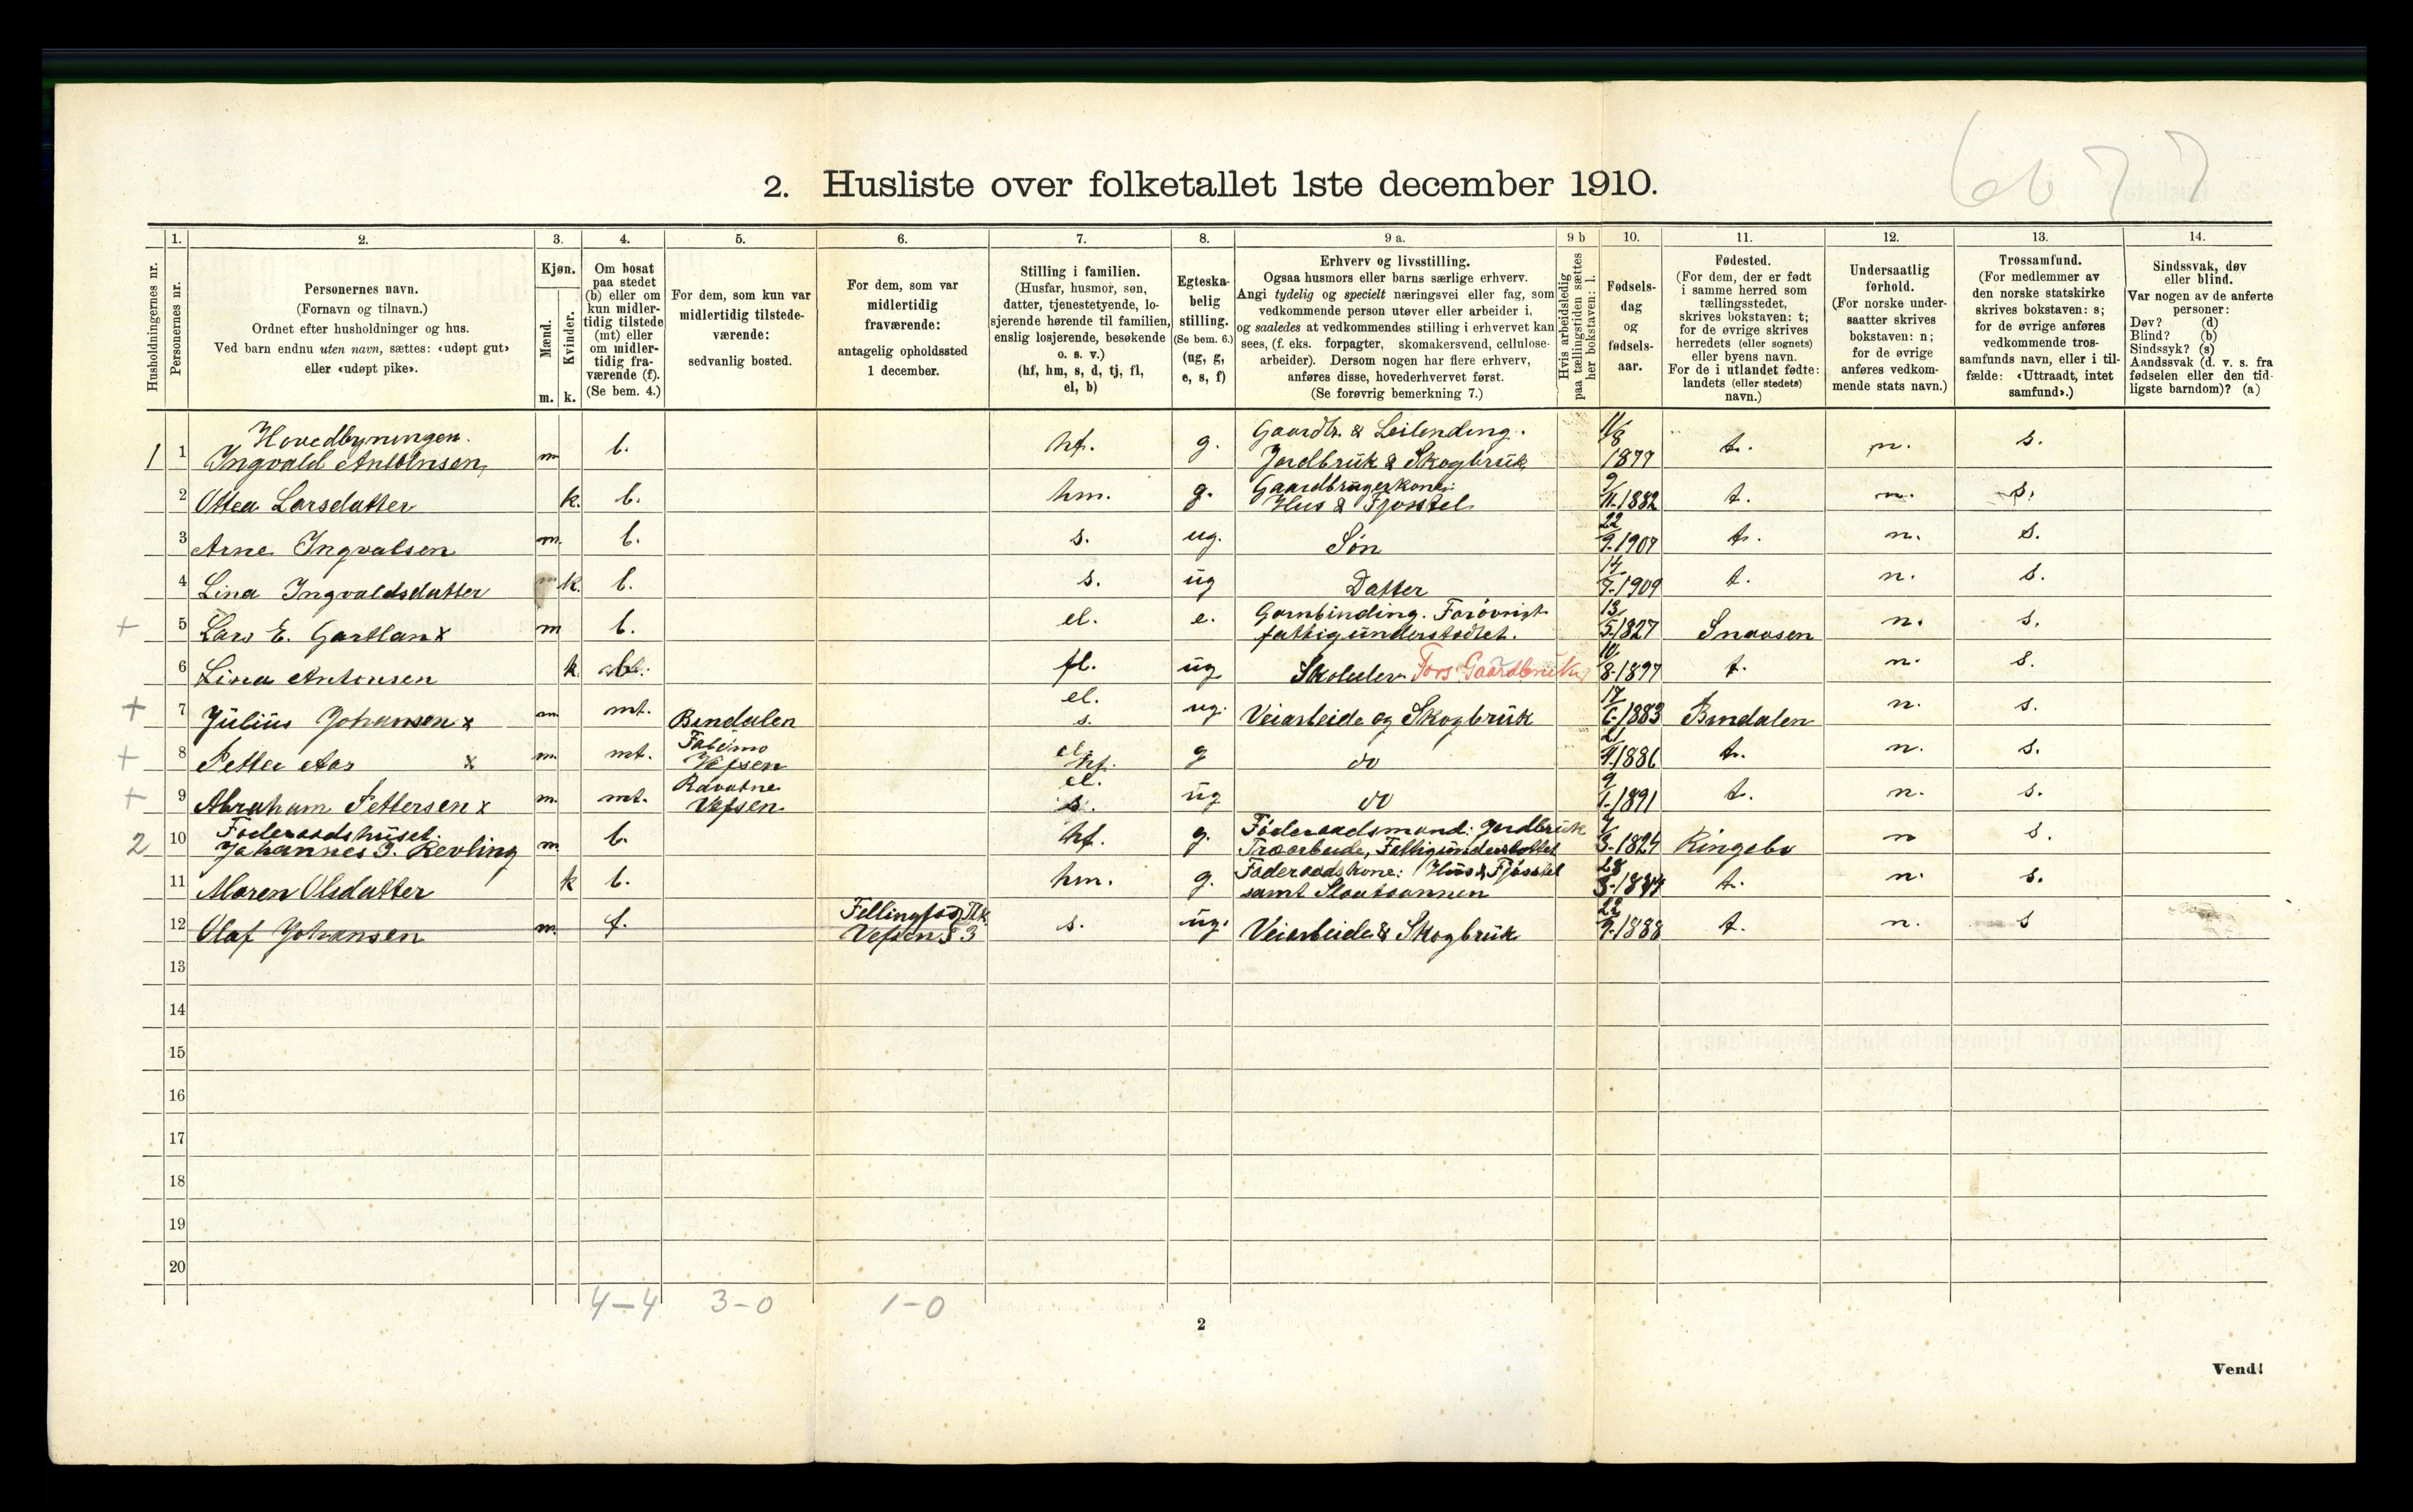 6677
2. Husliste over folketallet 1ste december 1910.
Husholdningernes nr.
1.
Personernes nr.
2.
Personernes navn.
(Fornavn og tilnavn.)
Ordnet efter husholdninger og hus.
Ved barn endnu uten navn, sættes: «udøpt gut»
eller «udøpt pike».
3.
Kjøn.
Mænd.
Kvinder.
m. k.
4.
Om bosat
paa stedet
(b) eller om
kun midler-
tidig tilstede
(mt) eller
om midler-
tidig fra-
værende (f).
(Se bem. 4.)
5.
For dem, som kun var
midlertidig tilstede-
værende:
sedvanlig bosted.
6.
For dem, som var
midlertidig
fraværende:
antagelig opholdssted
1 december.
7.
Stilling i familien.
(Husfar, husmor, søn,
datter, tjenestetyende, lo-
sjerende hørende til familien,
enslig losjerende, besøkende
o. s. v.)
(hf, hm, s, d, tj, fl,
el, b)
8.
Egteska-
belig
stilling.
(Se bem. 6.)
(ug, g,
e, s, f)
9 a.
Erhverv og livsstilling.
Ogsaa husmors eller barns særlige erhverv.
Angi tydelig og specielt næringsvei eller fag, som
vedkommende person utøver eller arbeider i,
og saaledes at vedkommendes stilling i erhvervet kan
sees, (f. eks. forpagter, skomakersvend, cellulose-
arbeider). Dersom nogen har flere erhverv,
anføres disse, hovederhvervet først.
(Se forøvrig bemerkning 7.)
9 b
Hvis arbeidsledig
paa tællingstiden sættes
her bokstaven: l.
10.
Fødsels-
dag
og
fødsels-
aar.
11.
Fødested.
(For dem, der er født
i samme herred som
tællingsstedet,
skrives bokstaven: t;
for de øvrige skrives
herredets (eller sognets)
eller byens navn.
For de i utlandet fødte:
landets (eller stedets)
navn.)
12.
Undersaatlig
forhold.
(For norske under-
saatter skrives
bokstaven: n;
for de øvrige
anføres vedkom-
mende stats navn.)
13.
Trossamfund.
(For medlemmer av
den norske statskirke
skrives bokstaven: s;
for de øvrige anføres
vedkommende tros-
samfunds navn, eller i til-
fælde: «Uttraadt, intet
samfund».)
14.
Sindssvak, døv
eller blind.
Var nogen av de anførte
personer:
Døv? (d)
Blind? (b)
Sindssyk? (s)
Aandssvak (d. v. s. fra
fødselen eller den tid-
ligste barndom)? (a)
Hovedbyningen. Gaardbr. & Leilending. 11/8
1 1 Ingvald Antonsen m b. hf. g. Jordbruk & Skogbruk 1877 t. n. s.
Gaardbrugerkone: 9/
2 Ottea Larsdatter k. b. hm. g. Hus & Fjosstel 11.1882 t. n. s.
22/
3 Arne Ingvalsen m. b. s. ug. Søn 9.1907 t. n. s.
14/
4 Lina Ingvaldsdatter k. b. s. ug Datter 7.1909 t. n. s.
Garnbinding. Forøvrigt 13/
+ 5 Lars E. Gartlan x m b. el. e. fattigunderstødtet. 5.1827 Snaasen n. s.
10/
6 Lina Antonsen k b. fl. ug Skoleelev Fors. Gaardbruker 8.1897 t. n. s.
el. 17/
+ 7 Julius Johansen x m mt. Bindalen s. ug. Veiarbeide og Skogbruk 6.1883 Bindalen n. s.
el. 21/
+ 8 Petter Aas x m. mt. Vefsen hf. g do 4.1886 t. n. s.
el. 9/
+ 9 Abraham Pettersen x m. mt. Vefsen s. ug do 1.1891 t. n. s.
Føderaadshuset. Føderaadsmand: Jordbruk
2 10 Johannes J. Revling m b. hf. g. Træarbeide, Fattigunderstøttet 3.1824 Ringebu n s.
Føderaadskone: Hus & Fjosstel 28/
11 Maren Olsdatter k b. hm. g. samt t. n. s.
22/
12 Olaf Johansen m. f. Vefsen § 3 s. ug. Veiarbeide & Skogbruk 9.1888 t. n. s
13
14
15
16
17
18
19
20
4-4 3-0 1-0
2
Vend!